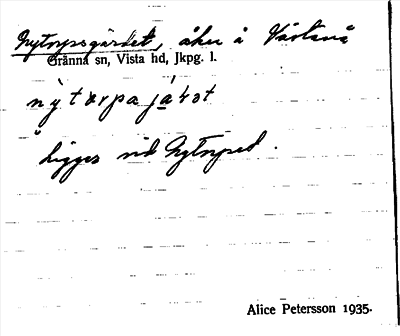 Nytorpsgärdet, åker å Västanå
Gränna sn, Vista hd, Jkpg. l.
nỳtɔrpajá̠ʈət
Ligger vid Nytorpet.
Alice Petersson 1935.